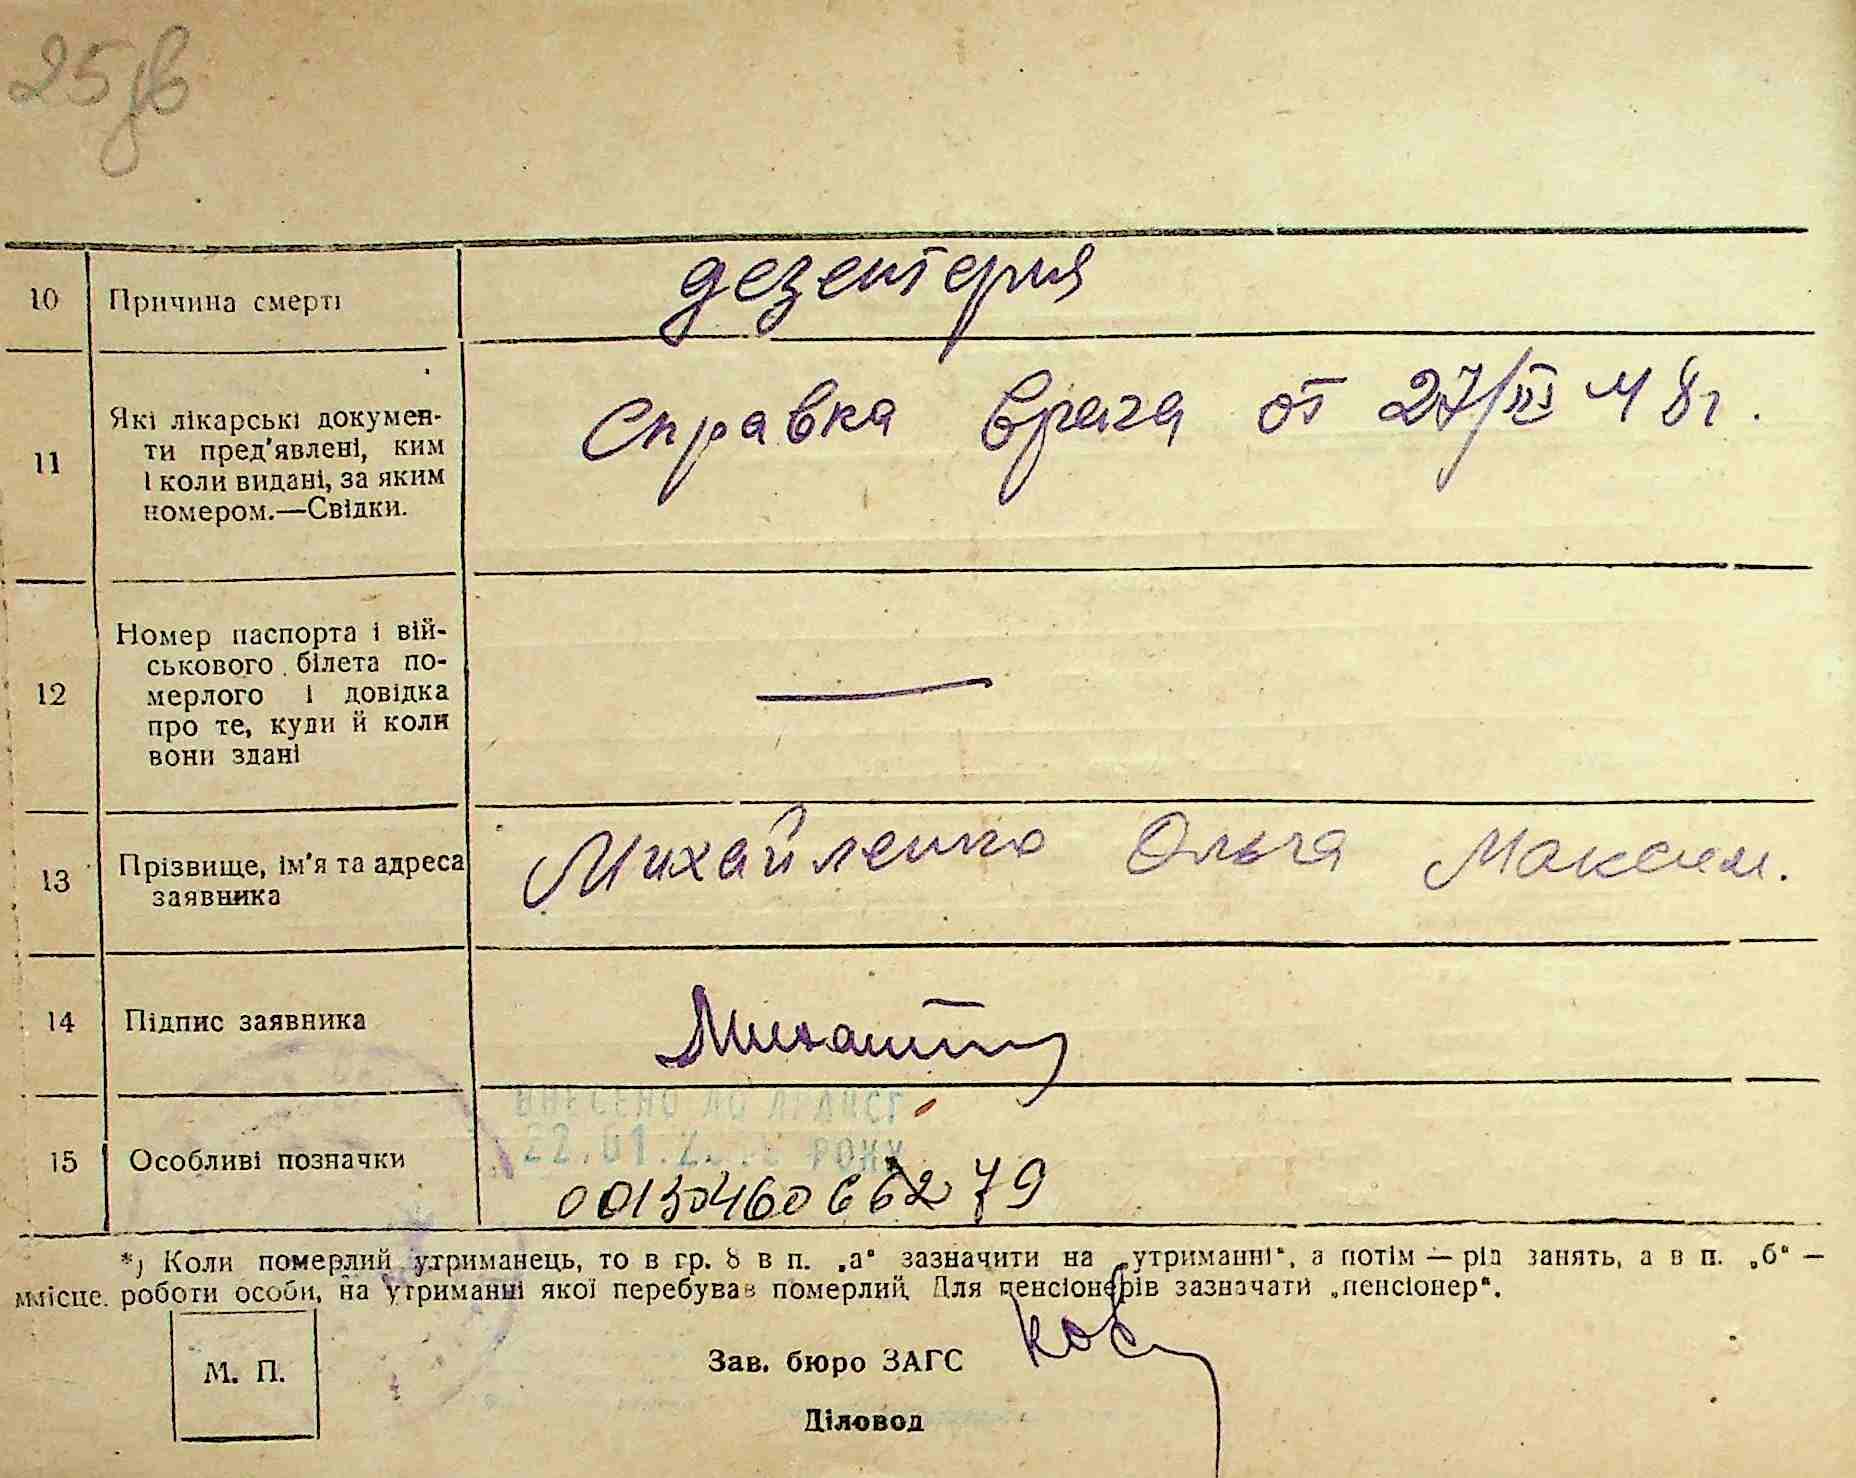 25зв
10 Причина смерті дезентерия
11 Які лікарські докумен-
ти пред'явлені, ким
і коли видані, за яким
номером.—Свідки.
Справка врача от 27/III 48г.
12 Номер паспорта і вій-
ськового білета по-
мерлого і довідка
про те, куди й коли
вони здані
—
13 Прізвище, ім'я та адреса
заявника
Михайленко Ольга Максим.
14 Підпис заявника
ВНЕСЕНО ДО ДРАЦСГ
22.01. РОКУ
15 Особливі позначки
00130460662 79
*) Коли померлий утриманець, то в гр. 8 в п. „а“ зазначити на „утриманні“, а потім — рід занять, а в п. „б“ —
місце роботи особи, на утриманні якої перебував померлий. Для пенсіонерів зазначати „пенсіонер“.
М. П.
Зав. бюро ЗАГС
Діловод